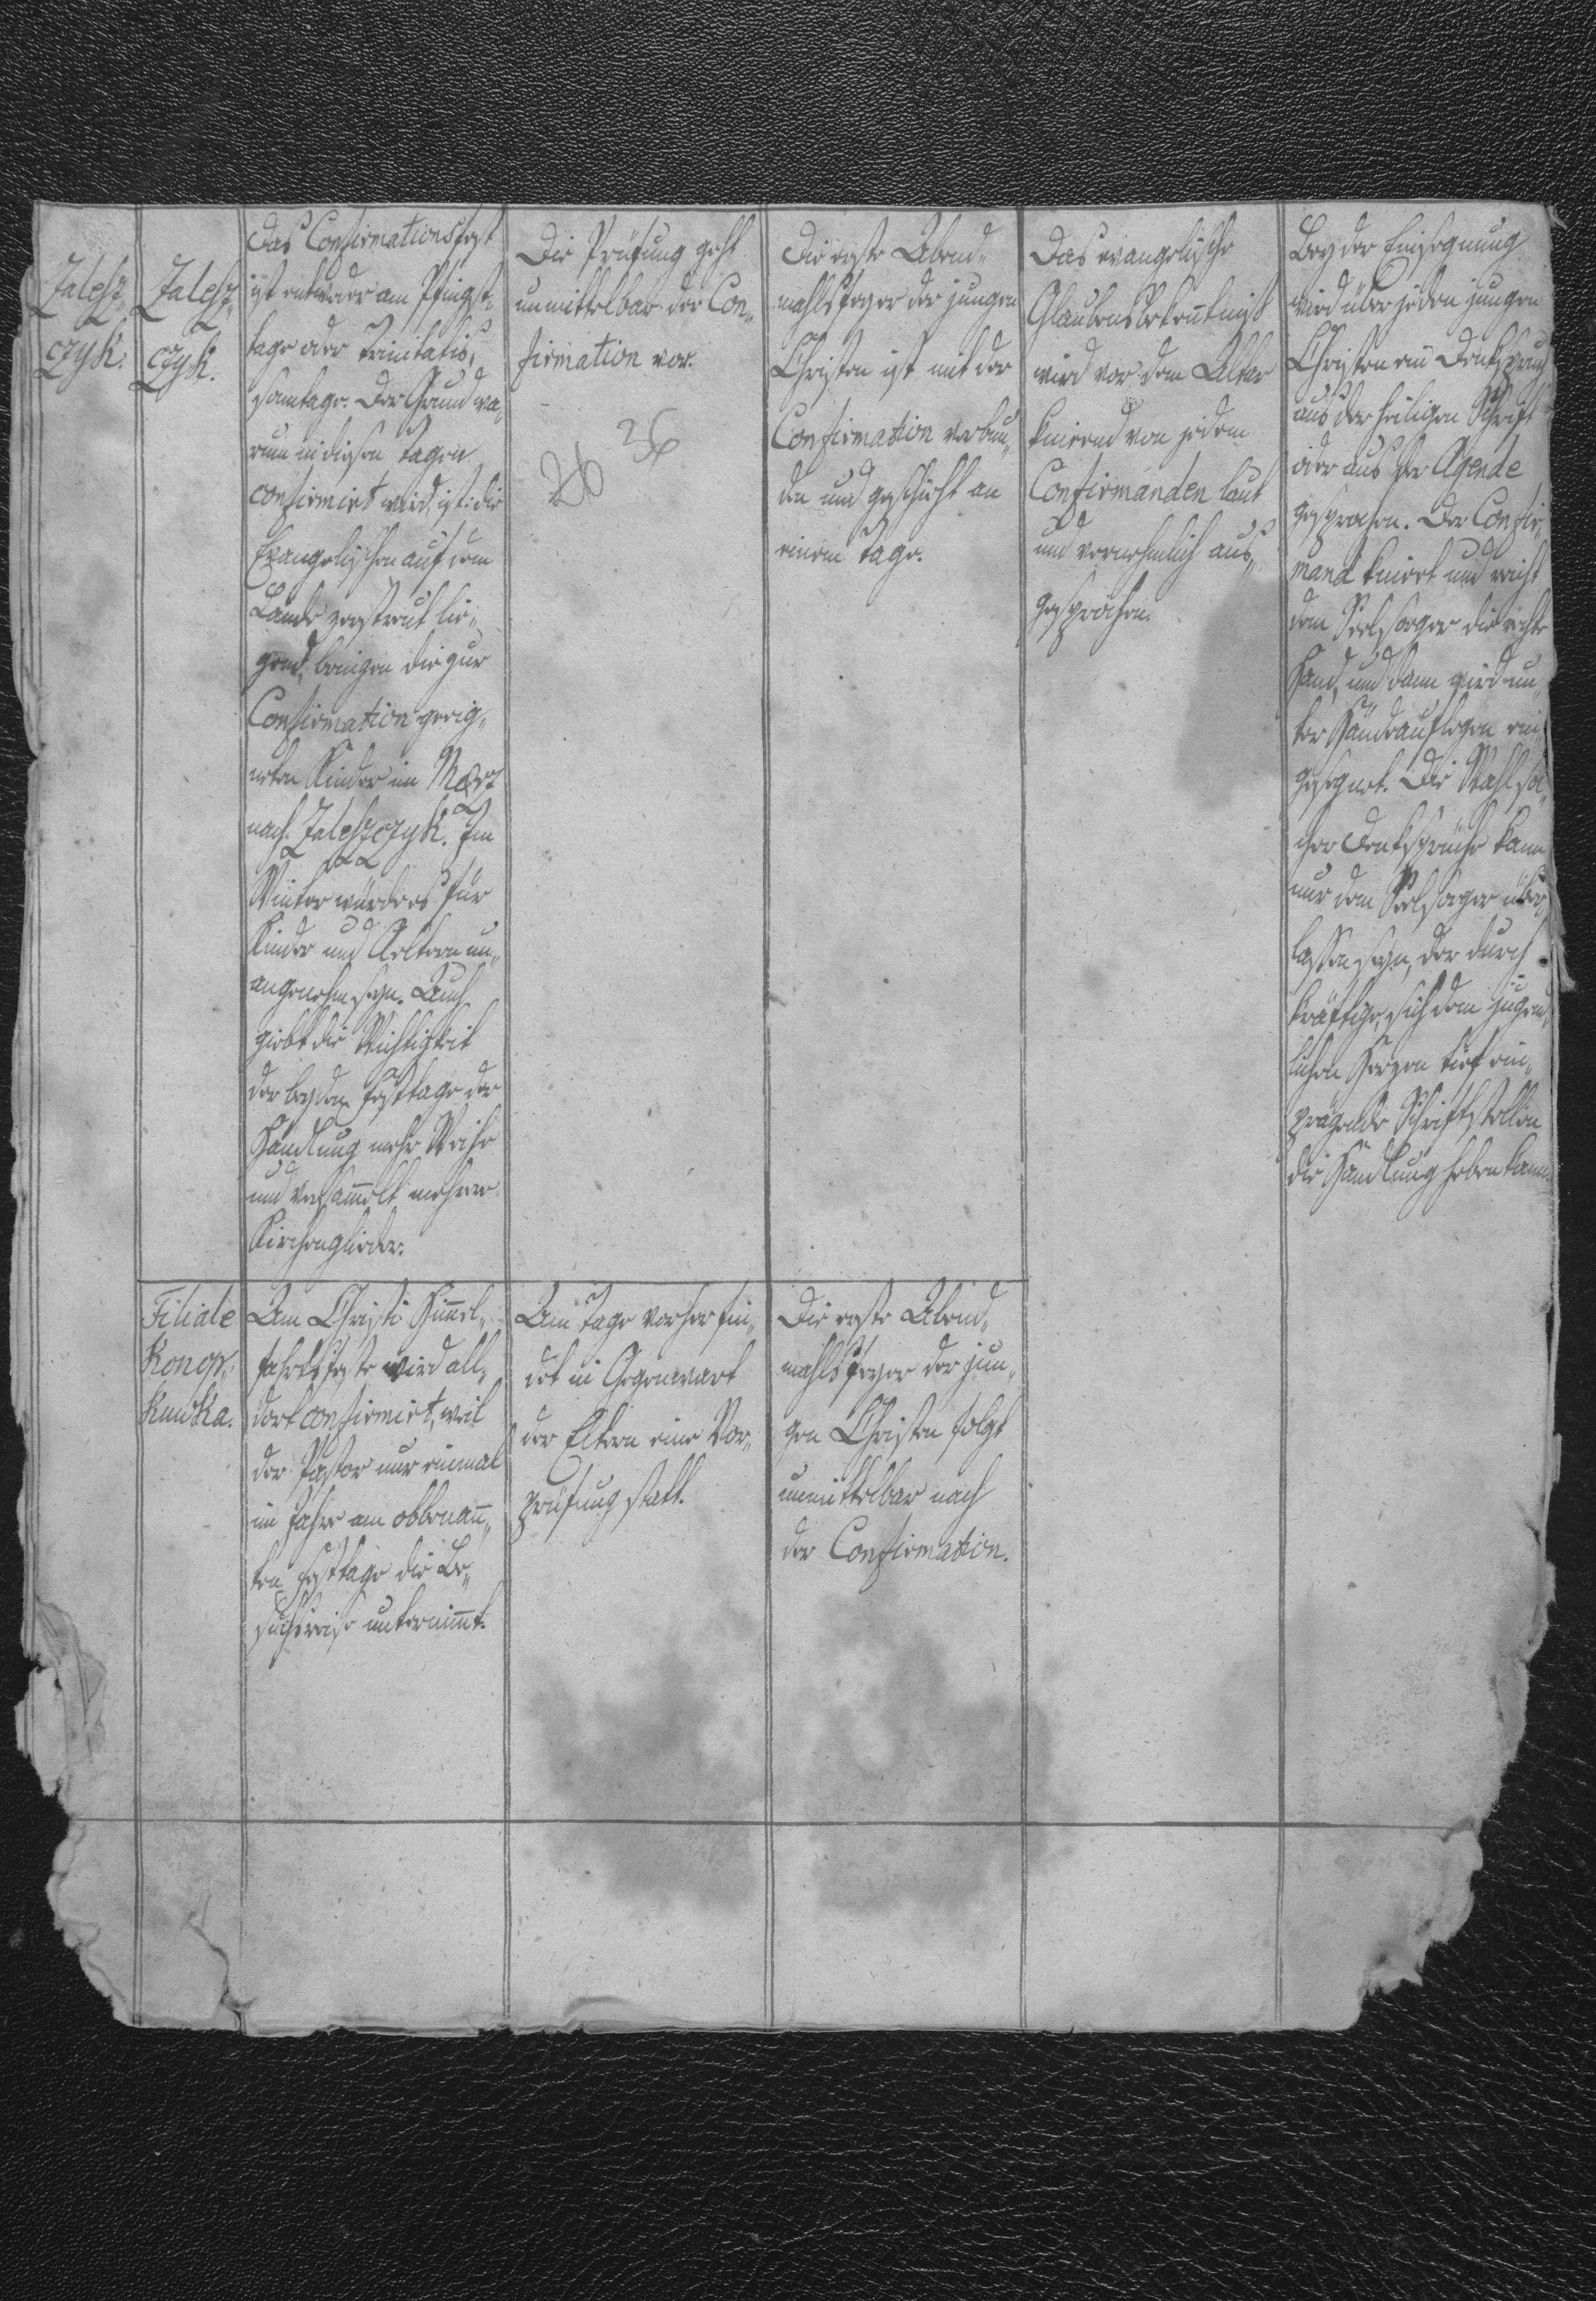 Zalesz-
czyk.
Zalesz-
czyk.
Das Confirmationsfest
ist entweder am Pfingst-
tage oder Trinitatis-
sonntage. Der Grund wa-
rum in diesen Tagen
confirmirt wird, ist: die
Evangelischen auf dem
Lande zerstreut lie-
gend, bringen die zur
Confirmation geeig-
neten Kinder im März
nach Zaleszczyk. Im
Winter würde es für
Kinder und Aeltern un-
angenehm seyn. Auch
giebt die Wichtigkeit
der beyden Festtage der
Handlung mehr Weihe
und versam̅elt mehrere
Kirchenglieder.
Die Prüfung geht
unmittelbar der Con-
firmation vor.
36
26
Die erste Abend-
mahlsfeyer der jungen
Christen ist mit der
Confirmation verbun-
den und geschieht an
einem Tage.
Das evangelische
Glaubensbeken̅tniß
wird vor dem Altar
knieend von jedem
Confirmanden laut
und vernehmlich aus-
gesprochen.
Bey der Einsegnung
wird über jeden jungen
Christen ein Denkspruch
aus der heiligen Schrift
oder aus der Agende
gesprochen. Der Confir-
mand kniet und reicht
dem Seelsorger die rechte
Hand, und dann wird un-
ter Händeauflegen ein-
gesegnet. Die Wahl sol-
cher Denksprüche kann
nur dem Seelsorger über-
lassen seyn, der durch
kräftige, sich dem jugend-
lichen Herzen tief ein-
prägende Schriftstellen
die Handlung heben kann.
Filiale
Konop-
kuwka.
Am Christi Him̅el-
fahrtsfeste wird all-
dort confirmirt, weil
der Pastor nur einmal
im Jahre am obbenan̅-
ten Festtage die Be-
suchsreise unternim̅t.
Am Tage vorher fin-
det in Gegenwart
der Eltern eine Vor-
prüfung statt.
Die erste Abend-
mahlsfeyer der jun-
gen Christen folgt
unmittelbar nach
der Confirmation.